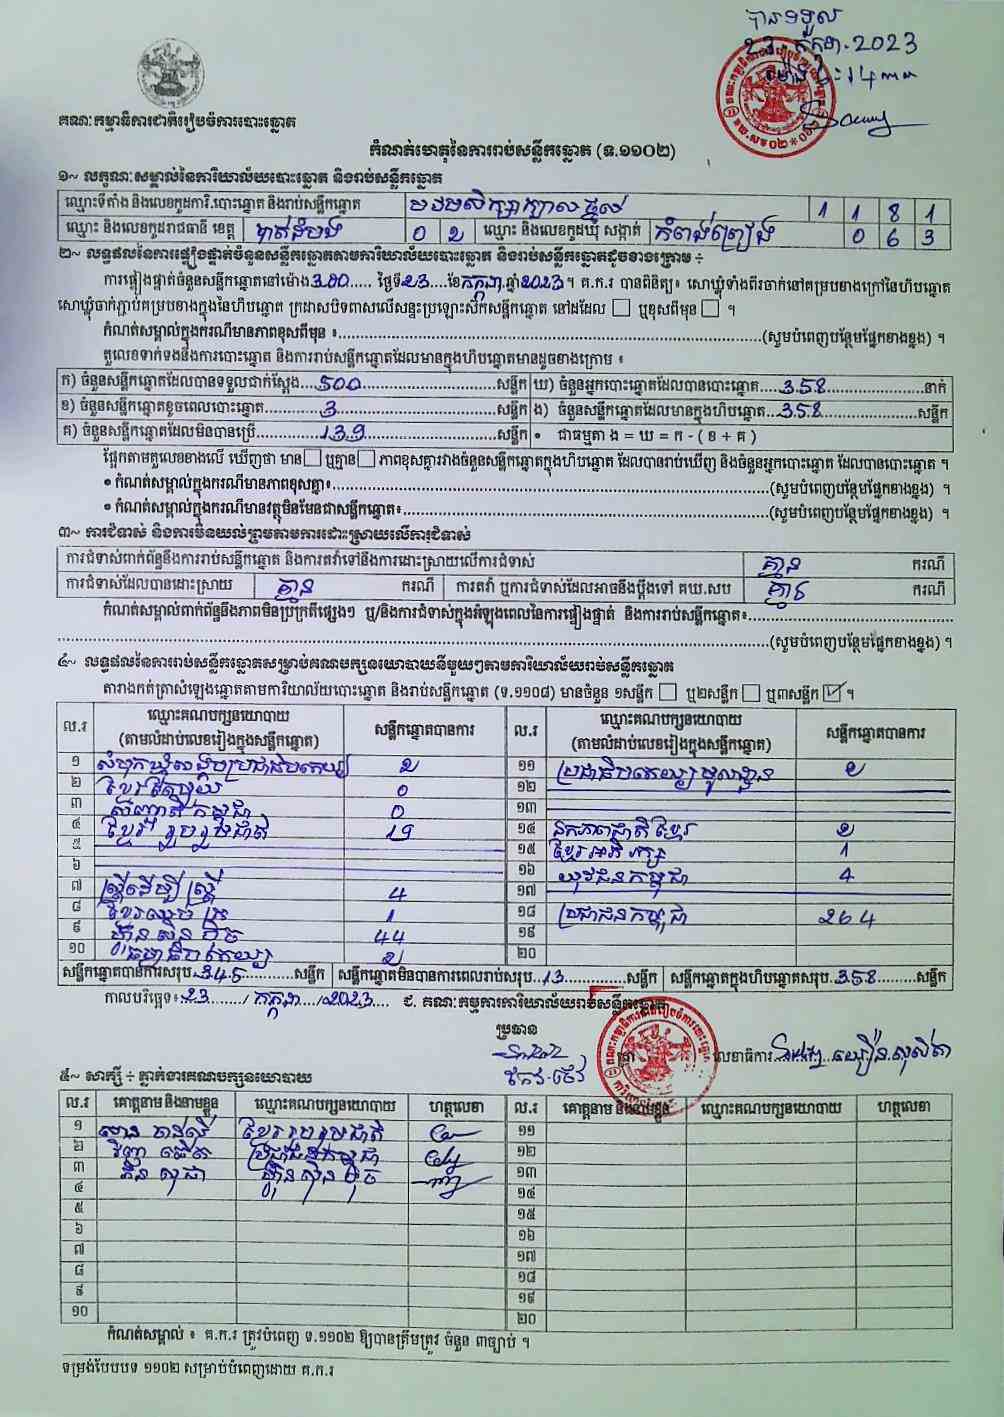 បានទទួល
23 កក្កដា 2023
គណៈកម្មាធិការជាតិរៀបចំការបោះឆ្នោត
កំណត់ហេតុនៃការរាប់សន្លឹកឆ្នោត (ទ.១១០២)
១~ លក្ខណៈសម្គាល់នៃការិយាល័យបោះឆ្នោត និងរាប់សន្លឹកឆ្នោត
ឈ្មោះទីតាំង និងលេខកូដការិ.បោះឆ្នោត និងរាប់សន្លឹកឆ្នោត មឋមសិក្សាក្បាលថ្នល់ 1 1 8 1
ឈ្មោះ និងលេខកូដរាជធានី ខេត្ត បាត់ដំបង 0 2 ឈ្មោះ និងលេខកូដឃុំ សង្កាត់ កំពង់ព្រៀង 0 6 3
២~ លទ្ធផលនៃការផ្ទៀងផ្ទាត់ចំនួនសន្លឹកឆ្នោតតាមការិយាល័យបោះឆ្នោត និងរាប់សន្លឹកឆ្នោតដូចខាងក្រោម ÷
ការផ្ទៀងផ្ទាត់ចំនួនសន្លឹកឆ្នោតនៅម៉ោង 3:00 ថ្ងៃទី 23 ខែ កក្កដា ឆ្នាំ 2023 ។ គ.ក.រ បានពិនិត្យ៖ សោឃ្លុំទាំងពីរចាក់នៅគម្របខាងក្រៅនៃហិបឆ្នោត
សោឃ្លុំចាក់ភ្ជាប់គម្របខាងក្នុងនៃហិបឆ្នោត ក្រដាសបិទពាសលើសន្ទះប្រឡោះសៀតសន្លឹកឆ្នោត នៅដដែល ☐ ឬខុសពីមុន ☐ ។
កំណត់សម្គាល់ក្នុងករណីមានភាពខុសពីមុន ៖ (សូមបំពេញបន្ថែមផ្នែកខាងខ្នង) ។
តួលេខទាក់ទងនឹងការបោះឆ្នោត និងការរាប់សន្លឹកឆ្នោតដែលមានក្នុងហិបឆ្នោតមានដូចខាងក្រោម ៖
ក) ចំនួនសន្លឹកឆ្នោតដែលបានទទួលជាក់ស្តែង 500 សន្លឹក ឃ) ចំនួនអ្នកបោះឆ្នោតដែលបានបោះឆ្នោត 358 នាក់
ខ) ចំនួនសន្លឹកឆ្នោតខូចពេលបោះឆ្នោត 3 សន្លឹក ង) ចំនួនសន្លឹកឆ្នោតដែលមានក្នុងហិបឆ្នោត 358 សន្លឹក
គ) ចំនួនសន្លឹកឆ្នោតដែលមិនបានប្រើ 139 សន្លឹក • ជាធម្មតា ង = ឃ = ក - ( ខ + គ )
ផ្អែកតាមតួលេខខាងលើ ឃើញថា មាន ☐ ឬគ្មាន ☐ ភាពខុសគ្នារវាងចំនួនសន្លឹកឆ្នោតក្នុងហិបឆ្នោត ដែលបានរាប់ឃើញ និងចំនួនអ្នកបោះឆ្នោត ដែលបានបោះឆ្នោត ។
• កំណត់សម្គាល់ក្នុងករណីមានភាពខុសគ្នា៖ (សូមបំពេញបន្ថែមផ្នែកខាងខ្នង) ។
• កំណត់សម្គាល់ក្នុងករណីមានវត្ថុមិនមែនជាសន្លឹកឆ្នោត៖ (សូមបំពេញបន្ថែមផ្នែកខាងខ្នង) ។
៣~ ការជំទាស់ និងការមិនយល់ព្រមតាមការដោះស្រាយលើការជំទាស់
ការជំទាស់ពាក់ព័ន្ធនឹងការរាប់សន្លឹកឆ្នោត និងការតវ៉ាទៅនឹងការដោះស្រាយលើការជំទាស់ គ្មាន ករណី
ការជំទាស់ដែលបានដោះស្រាយ គ្មាន ករណី ការតវ៉ា ឬការជំទាស់ដែលអាចនឹងប្តឹងទៅ គឃ.សប គ្មាន ករណី
កំណត់សម្គាល់ពាក់ព័ន្ធនឹងភាពមិនប្រក្រតីផ្សេងៗ ឬ/និងការជំទាស់ក្នុងអំឡុងពេលនៃការផ្ទៀងផ្ទាត់ និងការរាប់សន្លឹកឆ្នោត៖
(សូមបំពេញបន្ថែមផ្នែកខាងខ្នង) ។
៤~ លទ្ធផលនៃការរាប់សន្លឹកឆ្នោតសម្រាប់គណបក្សនយោបាយនីមួយៗតាមការិយាល័យរាប់សន្លឹកឆ្នោត
តារាងកត់ត្រាសំឡេងឆ្នោតតាមការិយាល័យបោះឆ្នោត និងរាប់សន្លឹកឆ្នោត (ទ.១១០៨) មានចំនួន ១សន្លឹក ☐ ឬ២សន្លឹក ☐ ឬ៣សន្លឹក ☑ ។
ល.រ ឈ្មោះគណបក្សនយោបាយ (តាមលំដាប់លេខរៀងក្នុងសន្លឹកឆ្នោត) សន្លឹកឆ្នោតបានការ ល.រ ឈ្មោះគណបក្សនយោបាយ (តាមលំដាប់លេខរៀងក្នុងសន្លឹកឆ្នោត) សន្លឹកឆ្នោតបានការ
១ សំបុកឃ្មុំសង្គមប្រជាធិបតេយ្យ 2 ១១ ប្រជាធិបតេយ្យមូលដ្ឋាន 2
២ ខ្មែរ 0 ១២
៣ សញ្ជាតិកម្ពុជា 0 ១៣
៤ ខ្មែររួបរួមជាតិ 19 ១៤ ឯកភាពជាតិខ្មែរ 2
៥ ១៥ ខ្មែរអភិរក្ស 1
៦ ១៦ យុវជនកម្ពុជា 4
៧ ស្ត្រីដើម្បីស្ត្រី 4 ១៧
៨ ខ្មែរឈប់ក្រ 1 ១៨ ប្រជាជនកម្ពុជា 264
៩ ហ្វ៊ុនស៊ិនប៉ិច 44 ១៩
១០ ធម្មាធិបតេយ្យ 2 ២០
សន្លឹកឆ្នោតបានការសរុប 345 សន្លឹក សន្លឹកឆ្នោតមិនបានការពេលរាប់សរុប 13 សន្លឹក សន្លឹកឆ្នោតក្នុងហិបឆ្នោតសរុប 358 សន្លឹក
កាលបរិច្ឆេទ៖ 23 / កក្កដា / 2023 ជ. គណៈកម្មការការិយាល័យរាប់សន្លឹកឆ្នោត
ប្រធាន
លេខាធិការ
៥~ សាក្សី ÷ ភ្នាក់ងារគណបក្សនយោបាយ
ល.រ គោត្តនាម និងនាមខ្លួន ឈ្មោះគណបក្សនយោបាយ ហត្ថលេខា ល.រ គោត្តនាម និងនាមខ្លួន ឈ្មោះគណបក្សនយោបាយ ហត្ថលេខា
១ ខ្មែររួបរួមជាតិ ១១
២ ប្រជាជនកម្ពុជា ១២
៣ ហ្វ៊ុនស៊ិនប៉ិច ១៣
៤ ១៤
៥ ១៥
៦ ១៦
៧ ១៧
៨ ១៨
៩ ១៩
១០ ២០
កំណត់សម្គាល់ ៖ គ.ក.រ ត្រូវបំពេញ ទ.១១០២ ឱ្យបានត្រឹមត្រូវ ចំនួន ៣ច្បាប់ ។
ទម្រង់បែបបទ ១១០២ សម្រាប់បំពេញដោយ គ.ក.រ